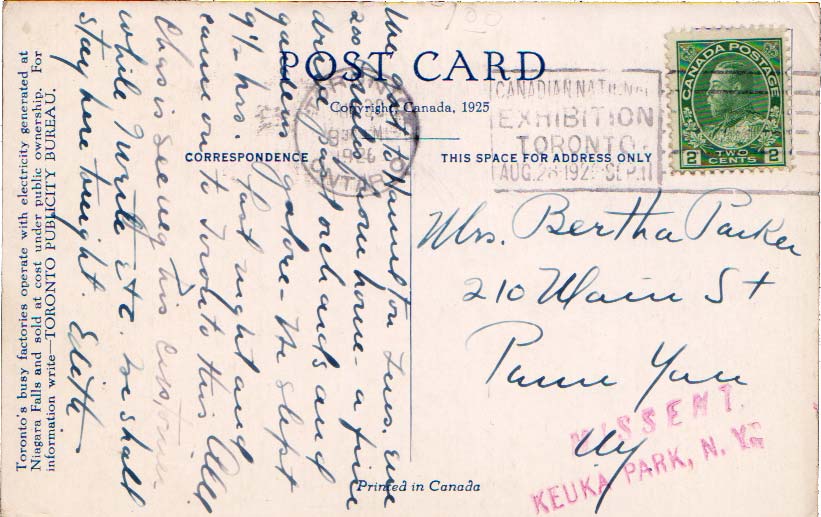 POST CARD
Copyright, Canada, 1925
CORRESPONDENCE
THIS SPACE FOR ADDRESS ONLY
CANADA POSTAGE
2 TWO CENTS 2
TORONTO
ONTARIO
CANADIAN NATIONAL
EXHIBITION
TORONTO
AUG. 28 192 SEP. 11
We got to Hamilton Tues. Eve
200 miles from home - a fine
drive past orchards and
gardens galore - He slept
9½ hrs. last night and
came on to Toronto this AM
Chas is seeing his customer
while I write etc. We shall
stay here tonight. Edith
Mrs. Bertha Parker
210 Main St
Penn Yan
NY
MISSENT.
KEUKA PARK, N. Y.
Toronto's busy factories operate with electricity generated at
Niagara Falls and sold at cost under public ownership. For
information write—TORONTO PUBLICITY BUREAU.
Printed in Canada